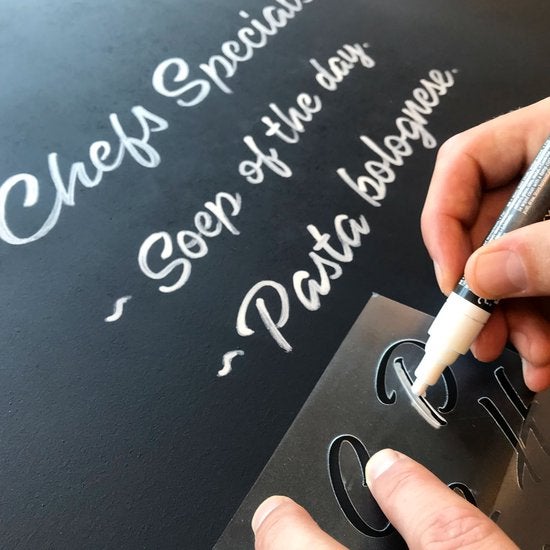 Chefs Specials
~ Soep of the day.
~ Pasta bolognese.